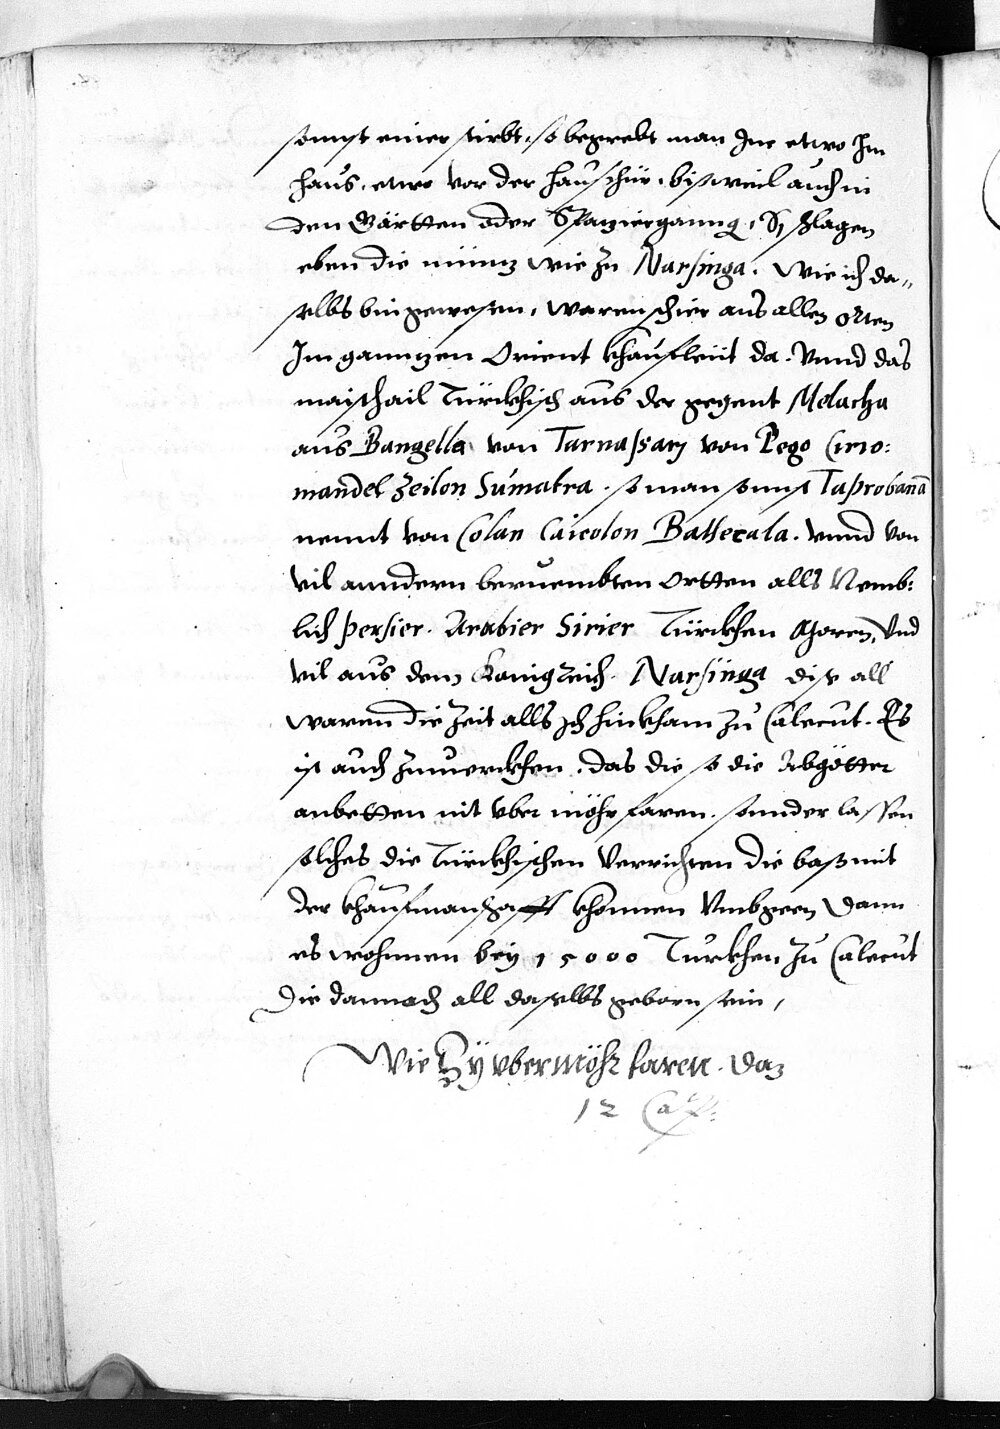 sonnst einer stirbt, so begrebt man Jne etwo Jm
haus, etwo vor der hausthür, bißweil auch in
den Gärtten oder Spazierganng, Sy schlagen
eben die münz wie zu Narsinga. Wie ich da„
selbs bin gewesen, waren schier aus allen orten
Jm ganntzen Orient khaufleüt da. Vnnd das
maisthail Türckhisch aus der gegent Melacha
aus Bangella von Tarnassarj von Pego Cirio:
mandel Zeilon Sumatra. so man sonnst Taprobana
nennt von Colan Caicolon Battecala. vnnd von
vil anndern beruembten ortten alls Nemb:
lich Persier. Arabier Sirier Türckhen Moren, Vnd
vil aus dem Konigreich Narsinga dise all
waren die Zeit alls ich hinkham zu Calecut. Es
ist auch zumerckhen, das die so die Abgötter
anbetten nit vber möhr faren. sonnder lassen
solches die Türckhischen Verrichten die baß mit
der khaufmanschafft khönnen Vmbgeen, Dann
es wohnnen bey 15000 Turkhen, zu Calecut
Die dannach all daselbs geborn sein,
Wie Sy vber möhr faren. Daz
12 Cap: